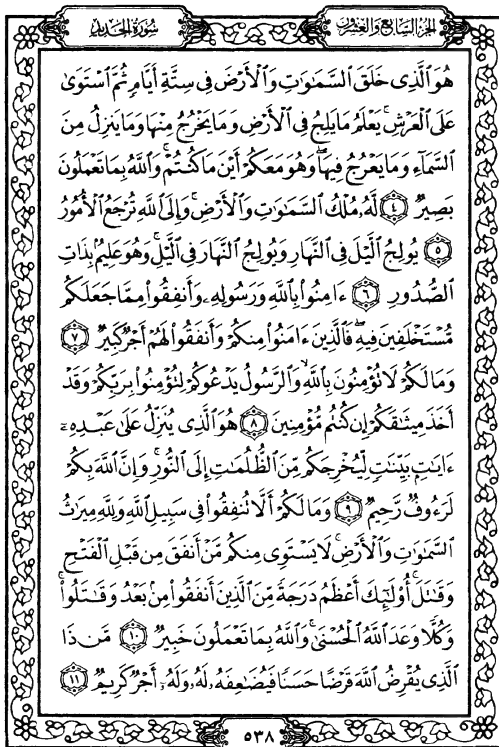 سُورَةُ الحَدِيد
الجُزْءُ السَّابِعُ وَالعِشْرُونَ
هُوَ ٱلَّذِى خَلَقَ ٱلسَّمَٰوَٰتِ وَٱلْأَرْضَ فِى سِتَّةِ أَيَّامٍ ثُمَّ ٱسْتَوَىٰ
عَلَى ٱلْعَرْشِ ۚ يَعْلَمُ مَا يَلِجُ فِى ٱلْأَرْضِ وَمَا يَخْرُجُ مِنْهَا وَمَا يَنزِلُ مِنَ
ٱلسَّمَآءِ وَمَا يَعْرُجُ فِيهَا ۖ وَهُوَ مَعَكُمْ أَيْنَ مَا كُنتُمْ ۚ وَٱللَّهُ بِمَا تَعْمَلُونَ
بَصِيرٌ ٤ لَّهُۥ مُلْكُ ٱلسَّمَٰوَٰتِ وَٱلْأَرْضِ ۚ وَإِلَى ٱللَّهِ تُرْجَعُ ٱلْأُمُورُ
٥ يُولِجُ ٱلَّيْلَ فِى ٱلنَّهَارِ وَيُولِجُ ٱلنَّهَارَ فِى ٱلَّيْلِ ۚ وَهُوَ عَلِيمٌۢ بِذَاتِ
ٱلصُّدُورِ ٦ ءَامِنُوا۟ بِٱللَّهِ وَرَسُولِهِۦ وَأَنفِقُوا۟ مِمَّا جَعَلَكُم
مُّسْتَخْلَفِينَ فِيهِ ۖ فَٱلَّذِينَ ءَامَنُوا۟ مِنكُمْ وَأَنفَقُوا۟ لَهُمْ أَجْرٌ كَبِيرٌ ٧
وَمَا لَكُمْ لَا تُؤْمِنُونَ بِٱللَّهِ ۙ وَٱلرَّسُولُ يَدْعُوكُمْ لِتُؤْمِنُوا۟ بِرَبِّكُمْ وَقَدْ
أَخَذَ مِيثَٰقَكُمْ إِن كُنتُم مُّؤْمِنِينَ ٨ هُوَ ٱلَّذِى يُنَزِّلُ عَلَىٰ عَبْدِهِۦٓ
ءَايَٰتٍۭ بَيِّنَٰتٍ لِّيُخْرِجَكُم مِّنَ ٱلظُّلُمَٰتِ إِلَى ٱلنُّورِ ۚ وَإِنَّ ٱللَّهَ بِكُمْ
لَرَءُوفٌ رَّحِيمٌ ٩ وَمَا لَكُمْ أَلَّا تُنفِقُوا۟ فِى سَبِيلِ ٱللَّهِ وَلِلَّهِ مِيرَٰثُ
ٱلسَّمَٰوَٰتِ وَٱلْأَرْضِ ۚ لَا يَسْتَوِى مِنكُم مَّنْ أَنفَقَ مِن قَبْلِ ٱلْفَتْحِ
وَقَٰتَلَ ۚ أُو۟لَٰٓئِكَ أَعْظَمُ دَرَجَةً مِّنَ ٱلَّذِينَ أَنفَقُوا۟ مِنۢ بَعْدُ وَقَٰتَلُوا۟ ۚ
وَكُلًّا وَعَدَ ٱللَّهُ ٱلْحُسْنَىٰ ۚ وَٱللَّهُ بِمَا تَعْمَلُونَ خَبِيرٌ ١٠ مَّن ذَا
ٱلَّذِى يُقْرِضُ ٱللَّهَ قَرْضًا حَسَنًا فَيُضَٰعِفَهُۥ لَهُۥ وَلَهُۥٓ أَجْرٌ كَرِيمٌ ١١
٥٣٨